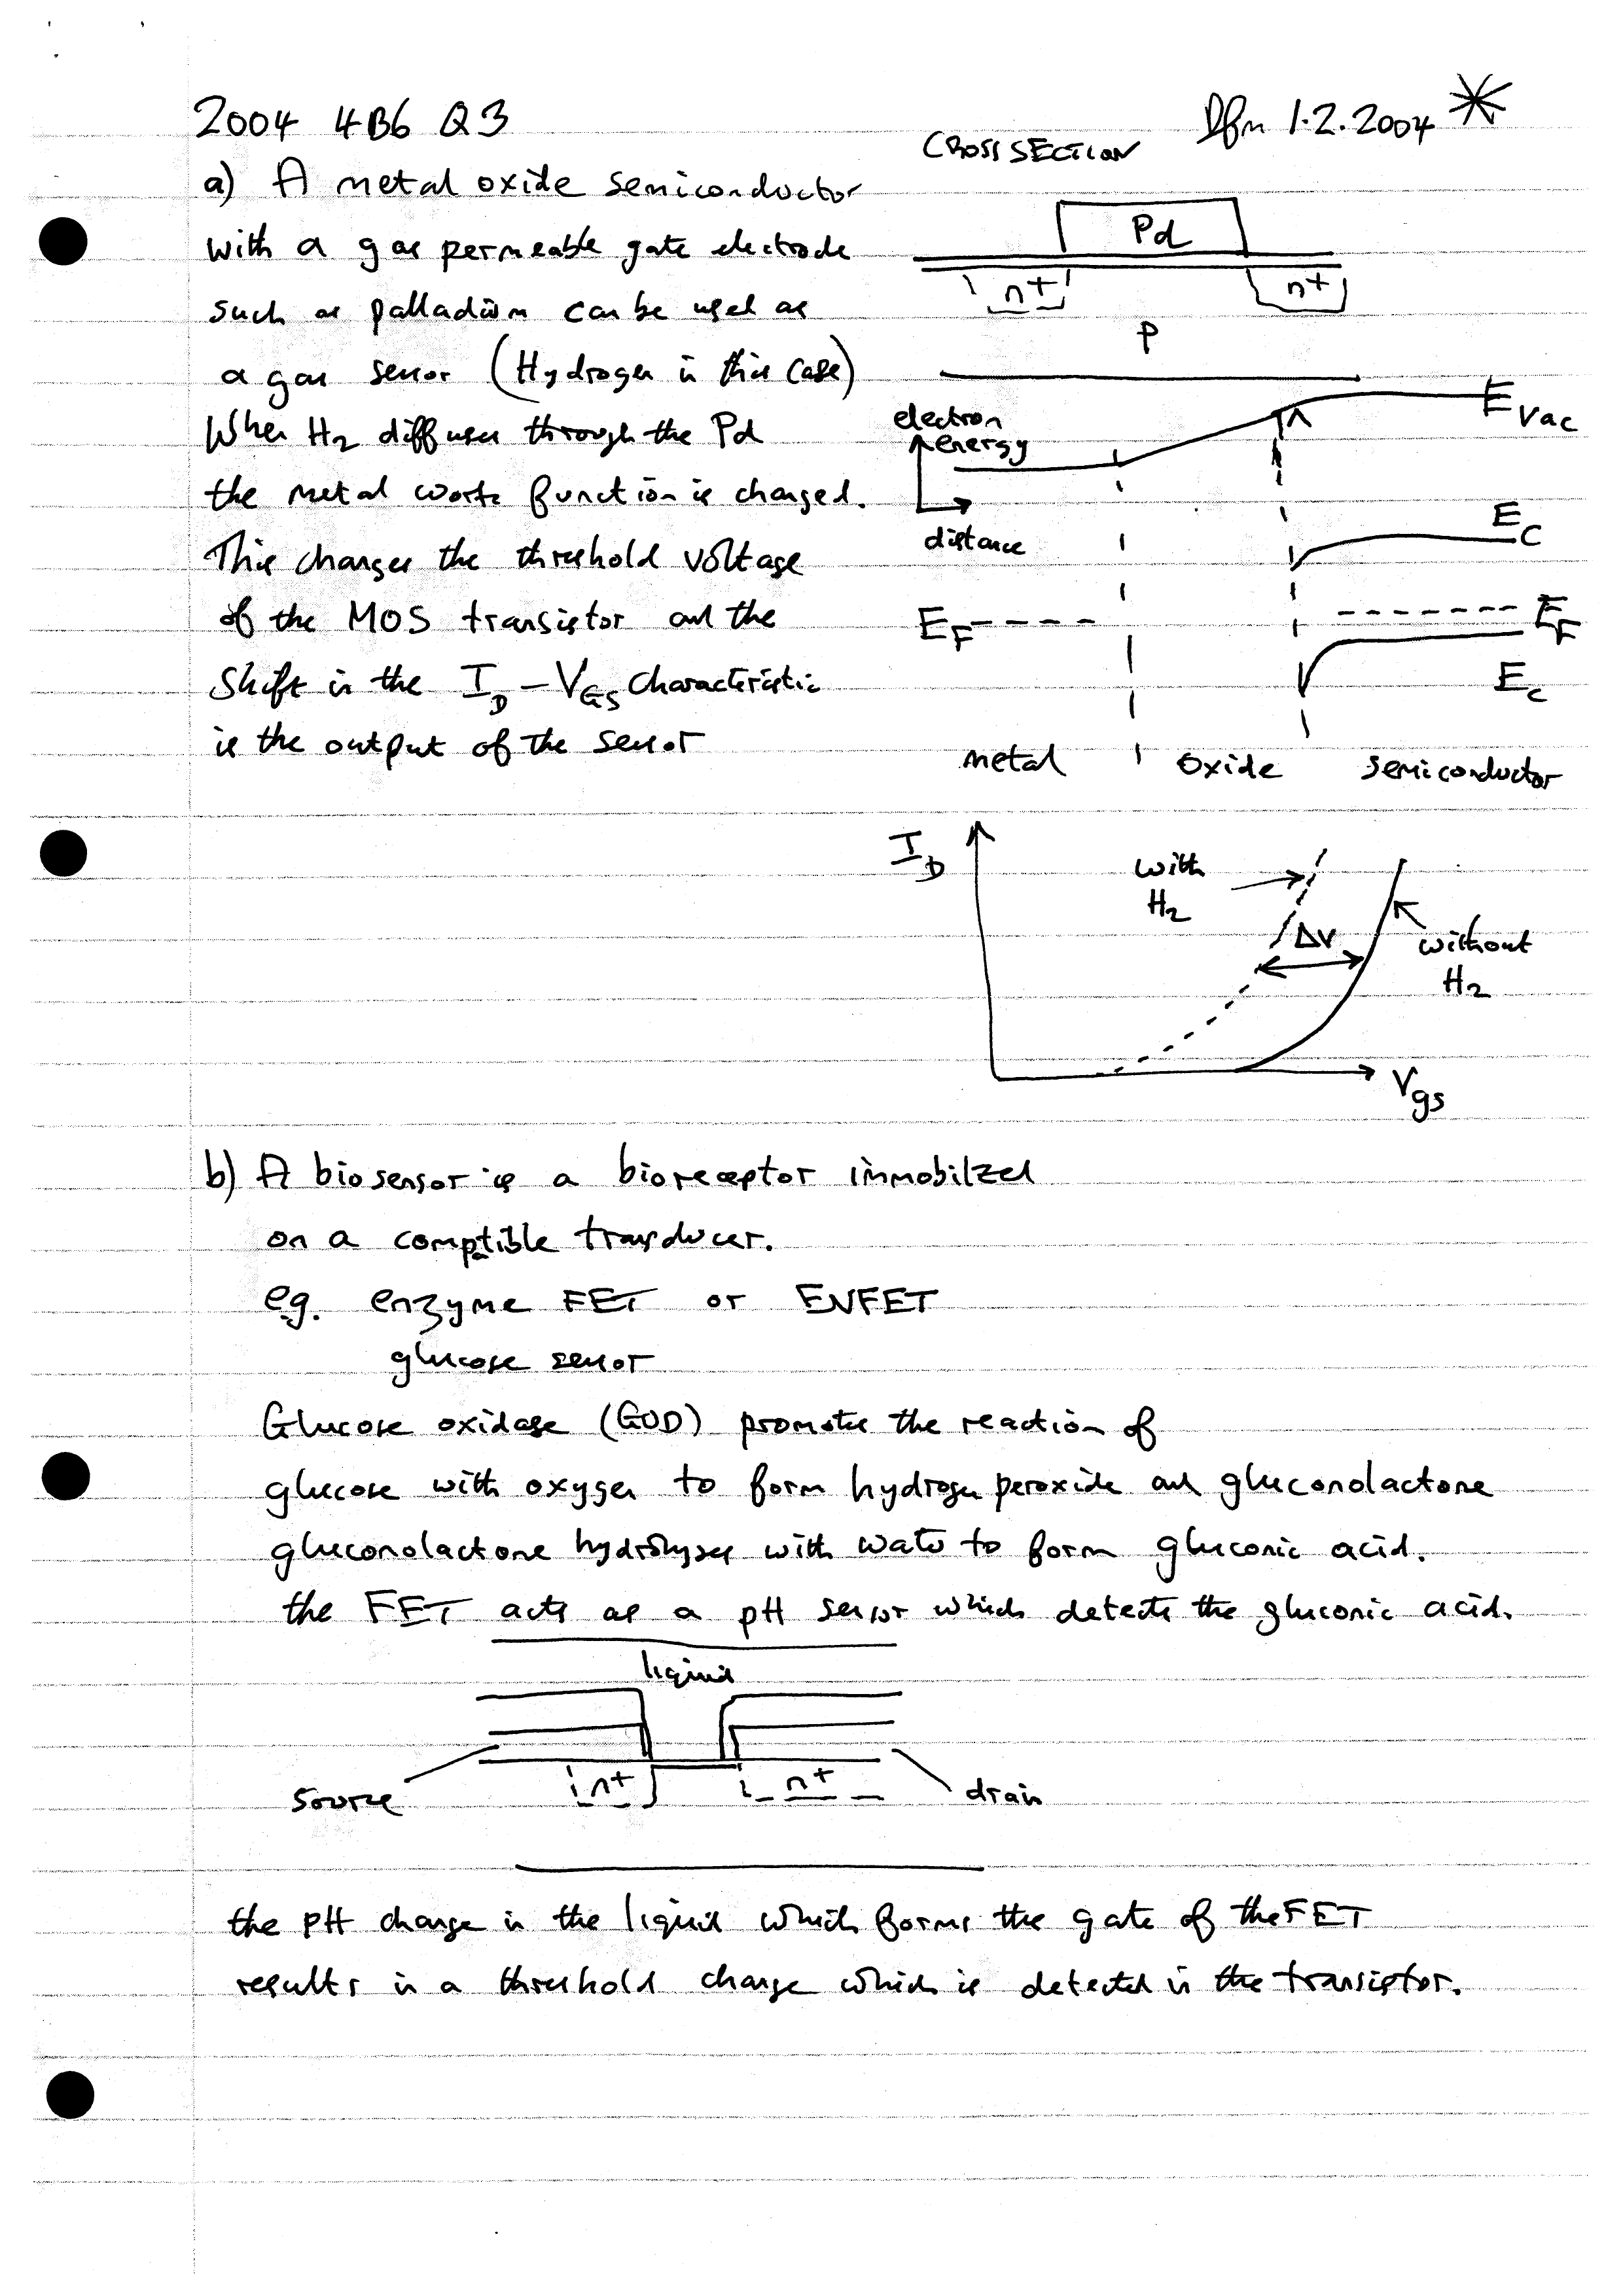 2004 4B6 Q3
1.2.2004
a) A metal oxide semiconductor
with a gas permeable gate electrode
such as palladium can be used as
a gas sensor (Hydrogen in this case)
When H2 diffuses through the Pd
the metal work function is changed.
This changes the threshold voltage
of the MOS transistor and the
Shift in the ID - VGS characteristic
is the output of the sensor
CROSS SECTION
Pd
n+ n+
P
electron
energy
distance
Evac
EC
EF EF
Ec
metal oxide semiconductor
ID
with
H2
ΔV
without
H2
Vgs
b) A biosensor is a bioreceptor immobilzed
on a comptible transducer.
eg. enzyme FET or ENFET
glucose sensor
Glucose oxidase (GOD) promotes the reaction of
glucose with oxygen to form hydrogen peroxide and gluconolactone
gluconolactone hydrolyses with water to form gluconic acid.
the FET acts as a pH sensor which detects the gluconic acid.
liquid
source n+ n+ drain
the pH change in the liquid which forms the gate of the FET
results in a threshold change which is detected in the transistor.